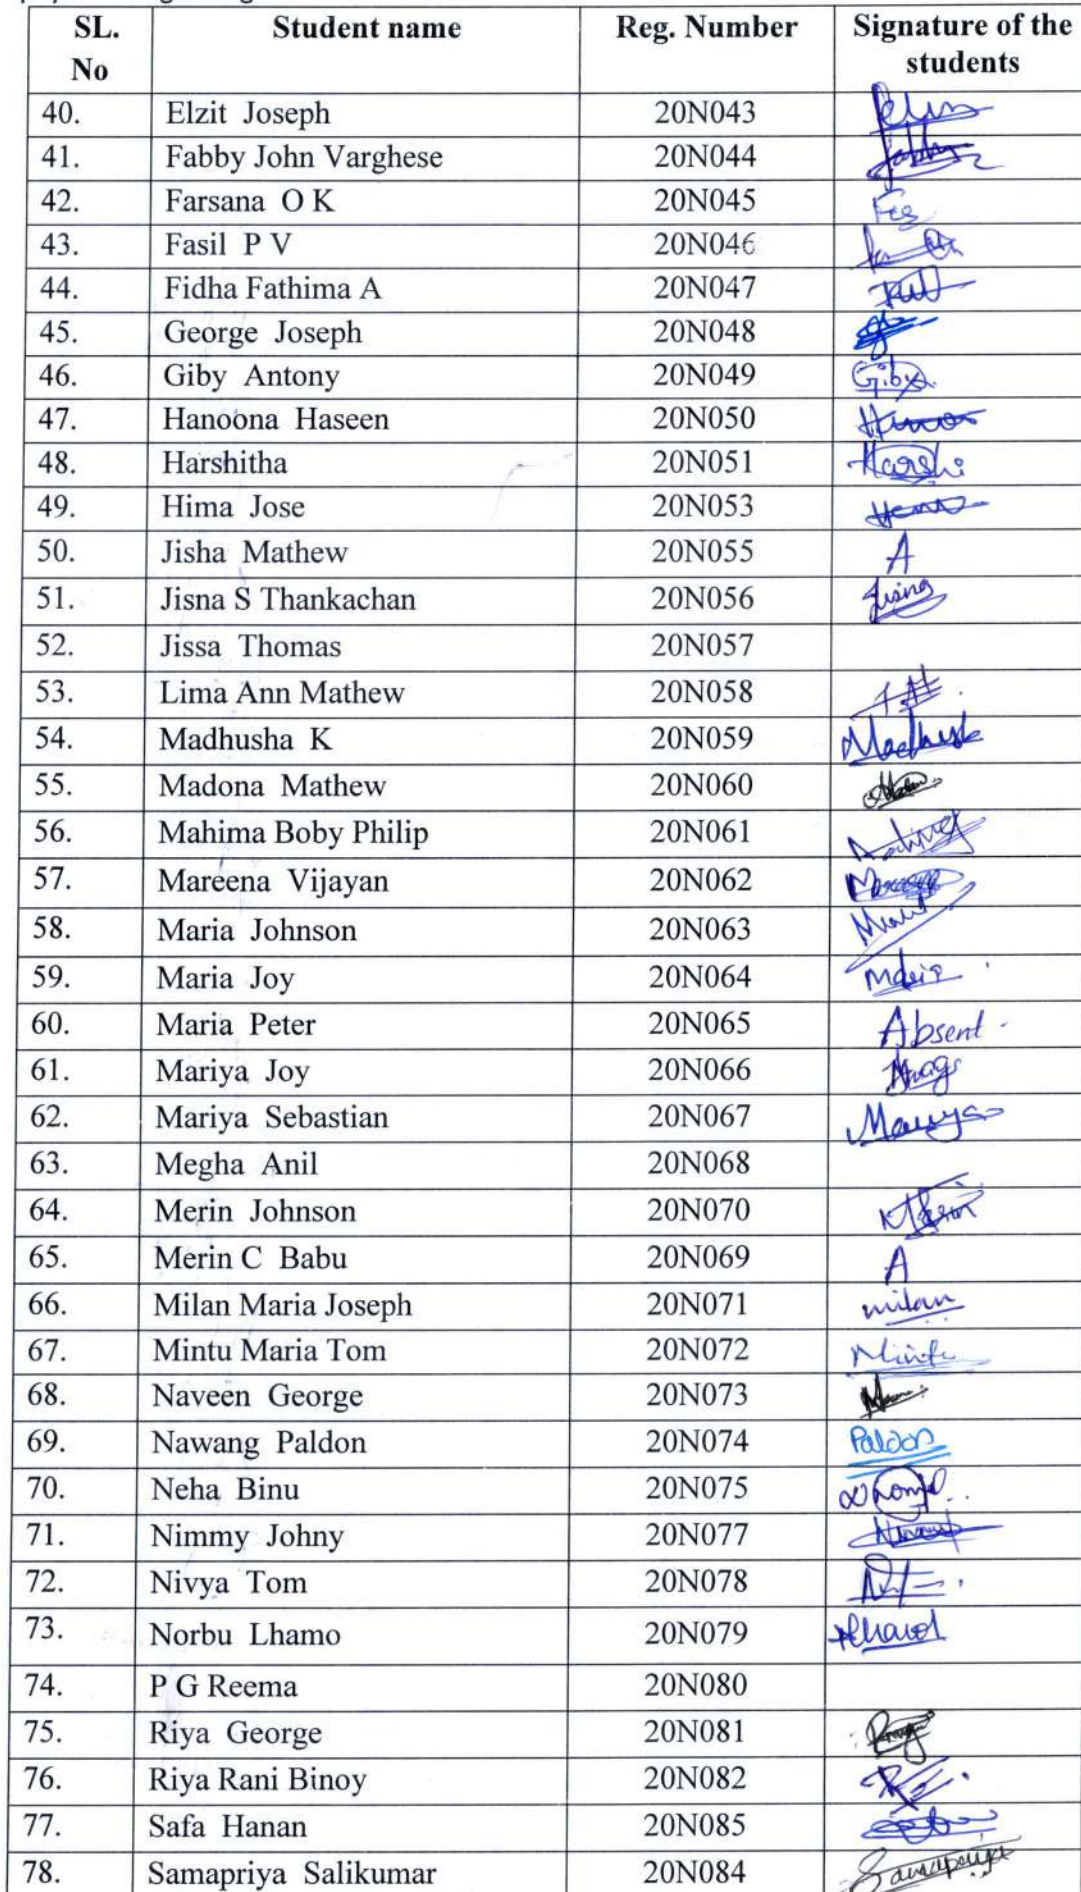 SL. No Student name Reg. Number Signature of the students
40. Elzit Joseph 20N043
41. Fabby John Varghese 20N044 Fabby
42. Farsana O K 20N045
43. Fasil P V 20N046
44. Fidha Fathima A 20N047
45. George Joseph 20N048
46. Giby Antony 20N049 Giby
47. Hanoona Haseen 20N050
48. Harshitha 20N051 Harshi
49. Hima Jose 20N053
50. Jisha Mathew 20N055 A
51. Jisna S Thankachan 20N056 Jisna
52. Jissa Thomas 20N057
53. Lima Ann Mathew 20N058
54. Madhusha K 20N059
55. Madona Mathew 20N060
56. Mahima Boby Philip 20N061
57. Mareena Vijayan 20N062
58. Maria Johnson 20N063
59. Maria Joy 20N064 Maria
60. Maria Peter 20N065 Absent
61. Mariya Joy 20N066
62. Mariya Sebastian 20N067
63. Megha Anil 20N068
64. Merin Johnson 20N070 Merin
65. Merin C Babu 20N069 A
66. Milan Maria Joseph 20N071 milan
67. Mintu Maria Tom 20N072
68. Naveen George 20N073
69. Nawang Paldon 20N074 Paldon
70. Neha Binu 20N075
71. Nimmy Johny 20N077
72. Nivya Tom 20N078
73. Norbu Lhamo 20N079
74. P G Reema 20N080
75. Riya George 20N081
76. Riya Rani Binoy 20N082
77. Safa Hanan 20N085
78. Samapriya Salikumar 20N084 Samapriya